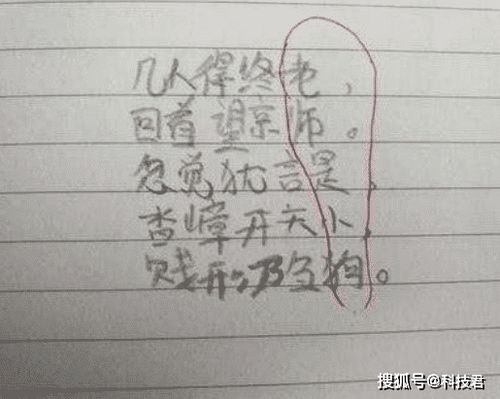 几人得终老，
回首望京师。
忽觉犹言是，
杳嶂开天小，
贱形乃刍狗。
搜狐号@科技君